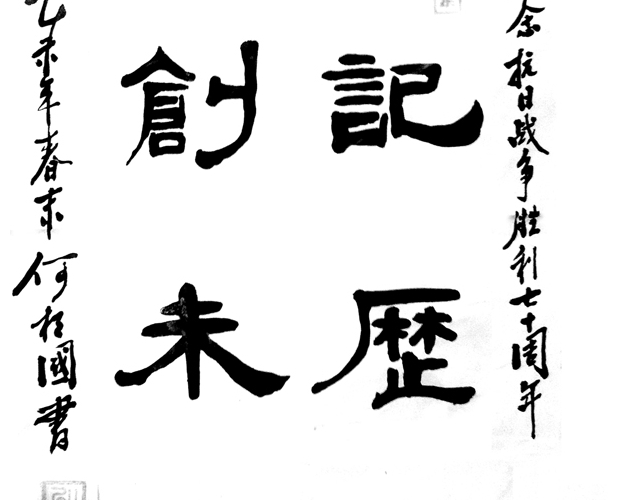 念抗日战争胜利七十周年
記歷
創未
乙未年春末何國書